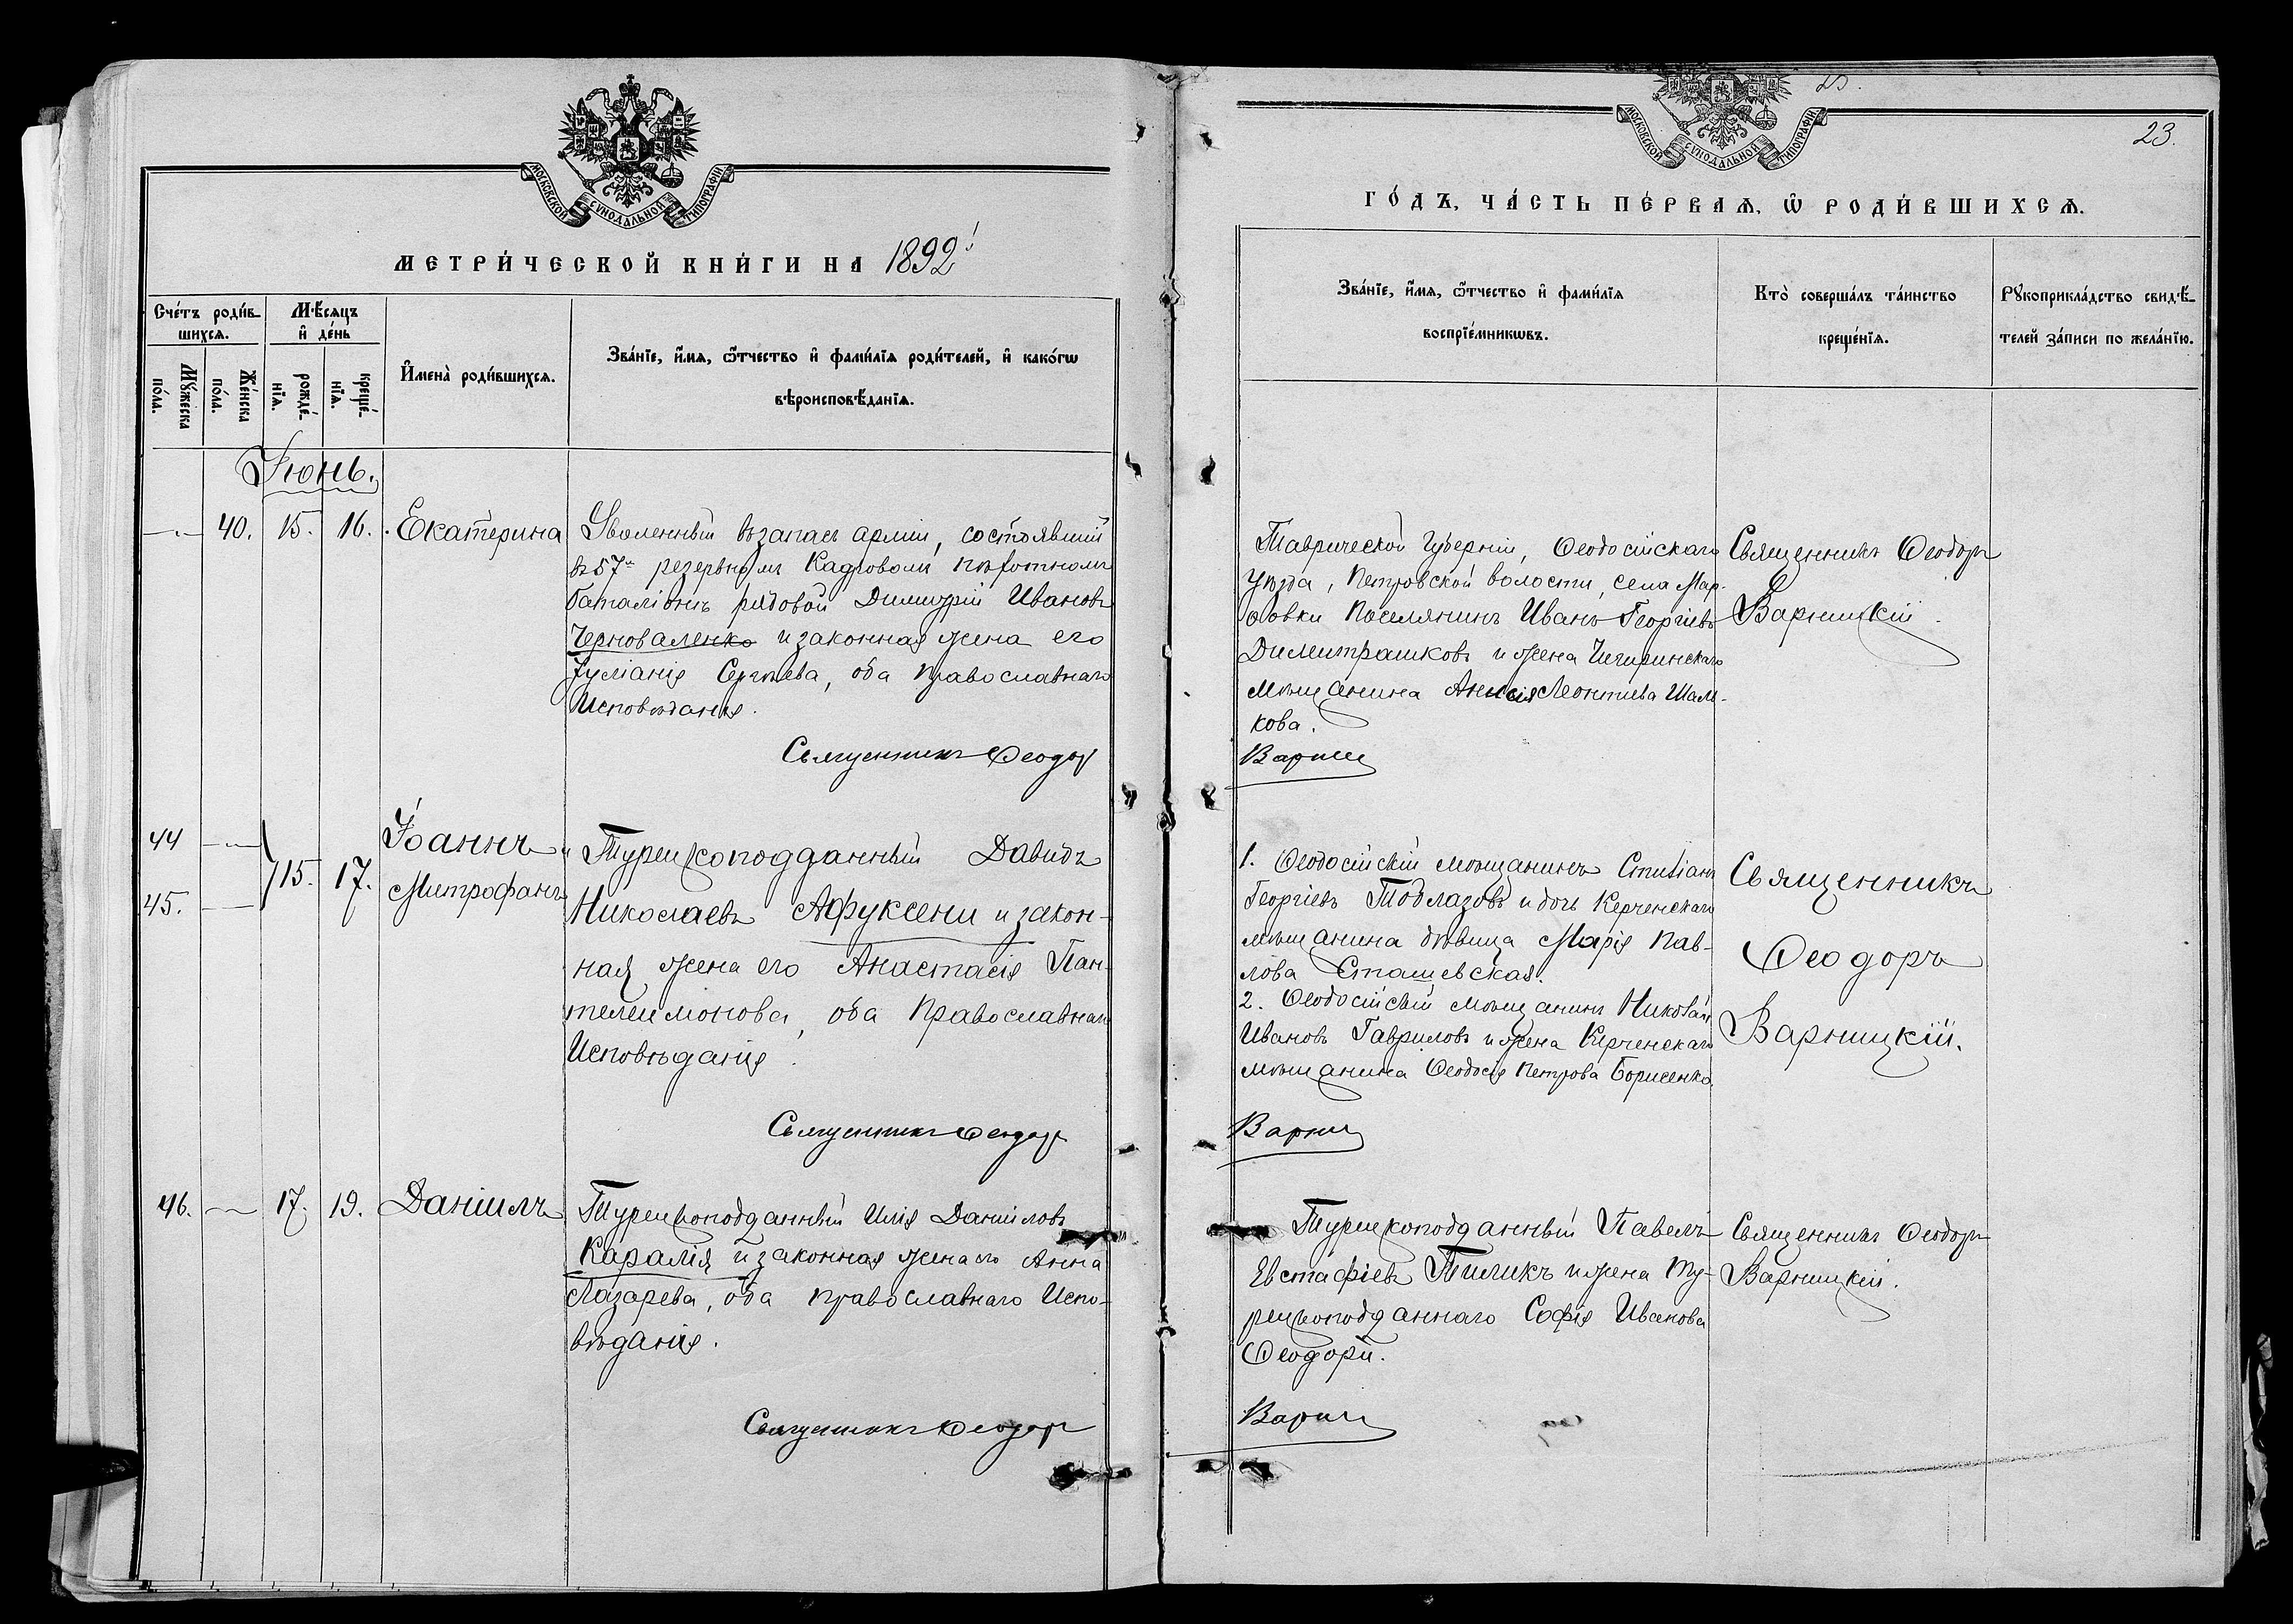 МОСКОВСКОЙ СѴНОДАЛЬНОЙ ТИПОГРАФІИ
МЕТРИ́ЧЕСКОЙ КНИ́ГИ НА 1892
Сче́тъ роди́в-
шихсѧ.
Мѣ́сѧцъ
и҆ де́нь
Мꙋ́жеска
по́ла.
Же́нска
по́ла.
рожде́-
нїѧ.
креще́-
нїѧ.
И҆мена̀ роди́вшихсѧ.
Зва́нїе, и҆́мѧ, ѻ҆́тчество и҆ фами́лїѧ роди́телей, и҆ како́гѡ
вѣроисповѣ́данїѧ.
Іюнь.
40. 15. 16. Екатерина
Уволенный въ запасъ арміи, состоявшій
въ 57м резервномъ Кадровомъ пѣхотномъ
баталіонѣ рядовой Димитрій Ивановъ
Черноваленко и законная жена его
Іуліанія Сергѣева, оба православнаго
Исповѣданія.
Священникъ Ѳеодоръ
44
45.
15. 17.
Іоаннъ и
Митрофанъ
Турецкоподданный Давидъ
Николаевъ Афуксени и закон-
ная жена его Анастасія Пан-
телеимонова, оба Православнаго
Исповѣданія.
Священникъ Ѳеодоръ
46. 17. 19. Даніилъ
Турецкоподданный Илія Даніиловъ
Каралія и законная жена его Анна
Лазарева, оба православнаго Испо-
вѣданія.
Священникъ Ѳеодоръ
23.
МОСКОВСКОЙ СѴНОДАЛЬНОЙ ТИПОГРАФІИ
23.
ГО́ДЪ, ЧА́СТЬ ПЕ́РВАѦ, Ѡ҆ РОДИ́ВШИХСѦ.
Зва́нїе, и҆́мѧ, ѻ҆́тчество и҆ фами́лїѧ
воспрїе́мникѡвъ.
Кто̀ соверша́лъ та́инство
креще́нїѧ.
Рꙋкоприкла́дство свидѣ́-
телей за́писи по жела́нїю.
Таврической Губерніи, Ѳеодосійскаго
Уѣзда, Петровской волости, села Мар-
фовки Поселянинъ Иванъ Георгіевъ
Димитрашковъ и жена Чигиринскаго
мѣщанина Леонтіева Шам-
кова.
Варниц
Священникъ Ѳеодоръ
Варницкій.
1. Ѳеодосійскій мѣщанинъ Стиліанъ
Георгіевъ Тодлазовъ и дочь Керченскаго
мѣщанина дѣвица Марія Пав-
лова Сташевская.
2. Ѳеодосійскій мѣщанинъ Николай
Ивановъ Гавриловъ и жена Керченскаго
мѣщанина Ѳеодосія Петрова Борисенко.
Варниц
Священникъ
Ѳеодоръ
Варницкій.
Турецкоподданный Павелъ
Евстафіевъ Тиликъ и жена Ту-
рецкоподданнаго Софія Иванова
Ѳеодори.
Варниц
Священникъ Ѳеодоръ
Варницкій.